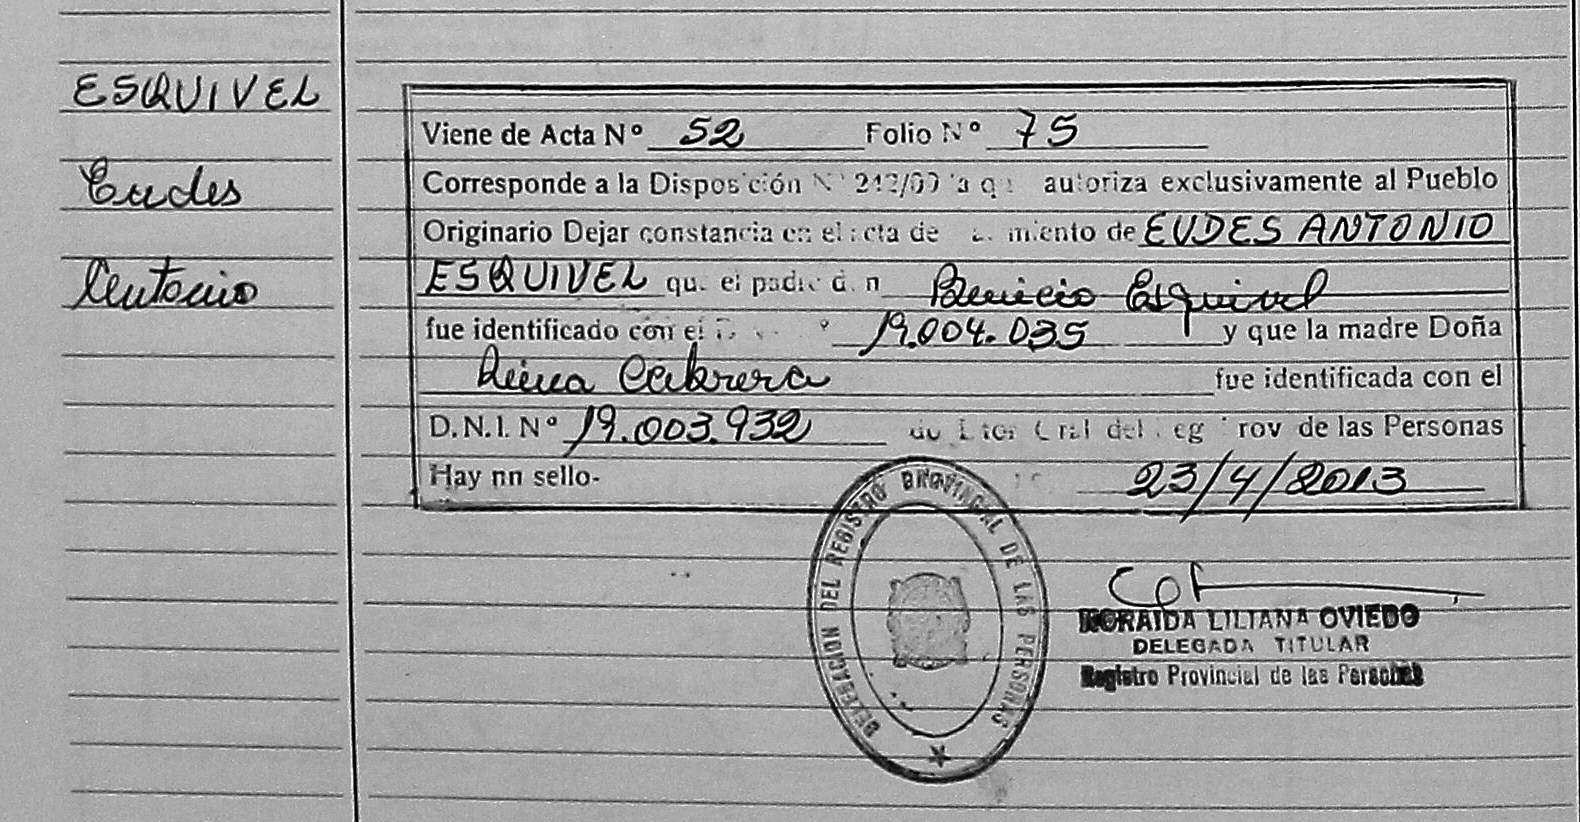 ESQUIVEL
Eudes
Antonio
Viene de Acta Nº 52 Folio Nº 75
Corresponde a la Disposición Nº 242/00 autoriza exclusivamente al Pueblo
Originario Dejar constancia en el acta de de EUDES ANTONIO
ESQUIVEL que el padre don Esquivel
fue identificado con el 19.004.035 y que la madre Doña
Cabrera fue identificada con el
D.N.I. Nº 19.003.932 del de las Personas
Hay nn sello- 23/4/2013
DELEGACION DEL REGISTRO PROVINCIAL DE LAS PERSONAS
NORAIDA LILIANA OVIEDO
DELEGADA TITULAR
Registro Provincial de las Personas